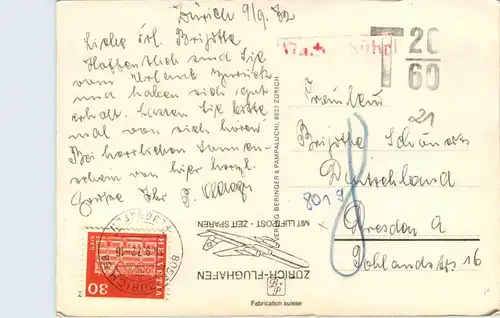 Zürich 9/9. 72
Liebe Frl. Brigitte
Hoffentlich sind Sie
vom Urlaub zurück
und haben sich gut
erholt. Lassen Sie bitte
mal von sich hören
Bei herrlichen Sonnen-
schein von hier herzl.
Grüsse Ihr
T 20
60
Fräulein
21
Brigitte
Deutschland
8019
Dresden A
Pohlandstr. 16
VERLAG BERINGER & PAMPALUCHI, 8022 ZÜRICH
MIT LUFTPOST - ZEIT SPAREN
ZÜRICH-FLUGHAFEN
B+P
Fabrication suisse
HELVETIA
30
GAIS